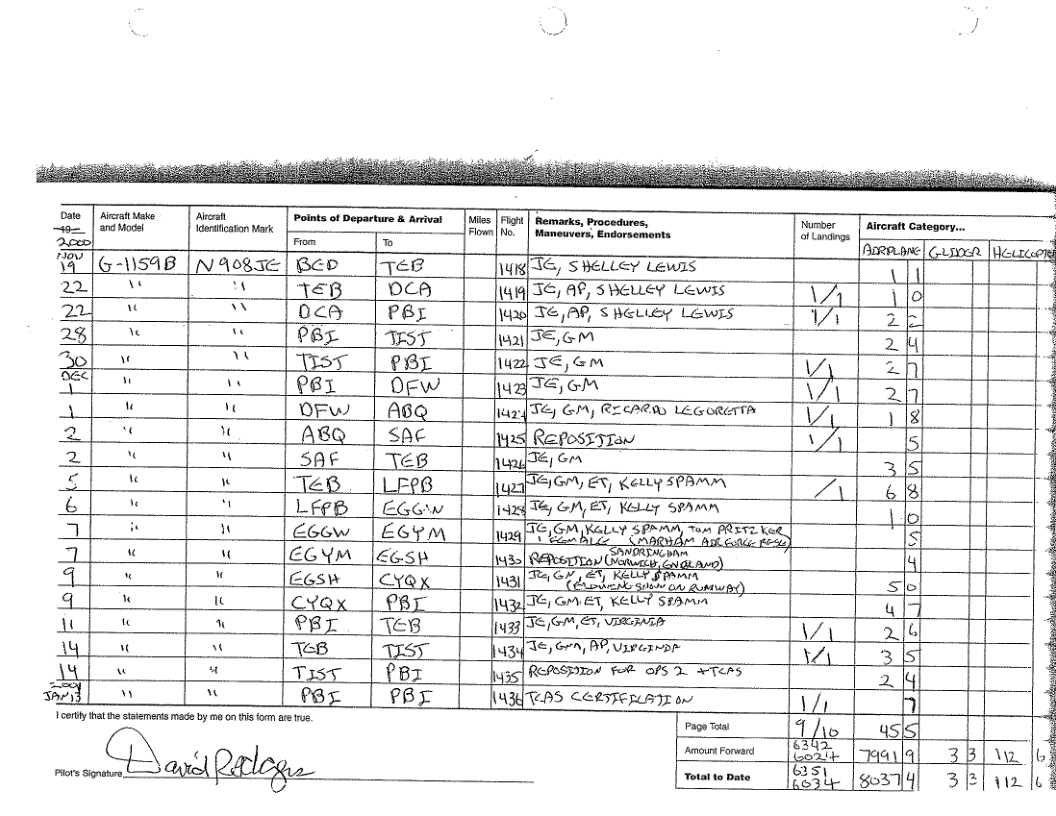 Date Aircraft Make and Model Aircraft Identification Mark Points of Departure & Arrival Miles Flown Flight No. Remarks, Procedures, Maneuvers, Endorsements Number of Landings Aircraft Category...
19 2000 From To AIRPLANE GLIDER HELICOPTE
NOV 19 G-1159B N908JE BED TEB 1418 JE, SHELLEY LEWIS 1 1
22 " " TEB DCA 1419 JE, AP, SHELLEY LEWIS 1/1 1 0
22 " " DCA PBI 1420 JE, AP, SHELLEY LEWIS 1/1 2 2
28 " " PBI TIST 1421 JE, GM 2 4
30 " " TIST PBI 1422 JE, GM 1/1 2 7
DEC 1 " " PBI DFW 1423 JE, GM 1/1 2 7
1 " " DFW ABQ 1424 JE, GM, RICARDO LEGORETTA 1/1 1 8
2 " " ABQ SAF 1425 REPOSITION 1/1 5
2 " " SAF TEB 1426 JE, GM 3 5
5 " " TEB LFPB 1427 JE, GM, ET, KELLY SPAMM /1 6 8
6 " " LFPB EGGW 1428 JE, GM, ET, KELLY SPAMM 1 0
7 " " EGGW EGYM 1429 JE, GM, KELLY SPAMM, TOM PRITZKER 5
1 FEMALE (MARHAM AIR FORCE BASE)
SANDRINGHAM
7 " " EGYM EGSH 1430 REPOSITION (NORWICH, ENGLAND) 4
9 " " EGSH CYQX 1431 JE, GM, ET, KELLY SPAMM 5 0
(BLOWING SNOW ON RUNWAY)
9 " " CYQX PBI 1432 JE, GM, ET, KELLY SPAMM 4 7
11 " " PBI TEB 1433 JE, GM, ET, VIRGINIA 1/1 2 6
14 " " TEB TIST 1434 JE, GM, AP, VIRGINIA 1/1 3 5
14 " " TIST PBI 1435 REPOSITION FOR OPS 2 + TCAS 2 4
2001 JAN 13 " " PBI PBI 1436 TCAS CERTIFICATION 1/1 7
I certify that the statements made by me on this form are true.
Page Total 9/10 45 5
Amount Forward 6342 6024 7991 9 3 3 112 6
Pilot's Signature David Rodgers
Total to Date 6351 6034 8037 4 3 3 112 6